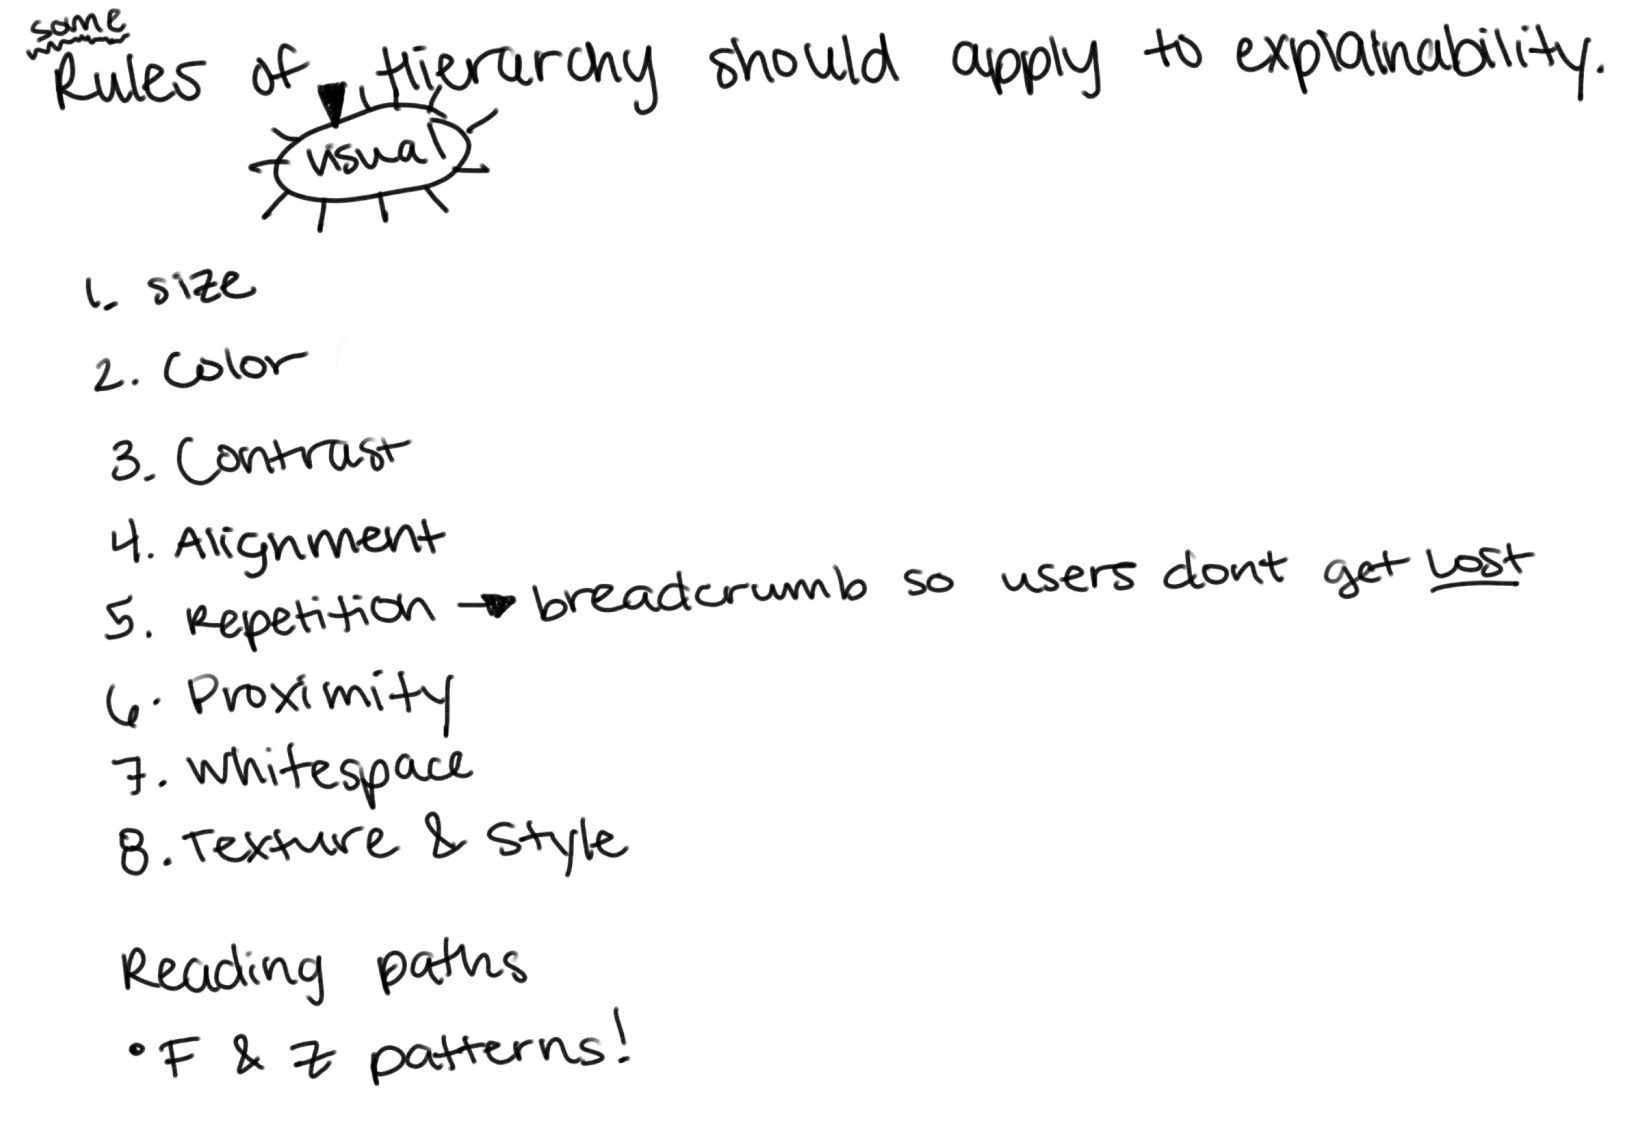 same
Rules of Hierarchy should apply to explainability.
visual
1. size
2. Color
3. Contrast
4. Alignment
5. Repetition → breadcrumb so users dont get Lost
6. Proximity
7. Whitespace
8. Texture & Style
Reading paths
• F & Z patterns!